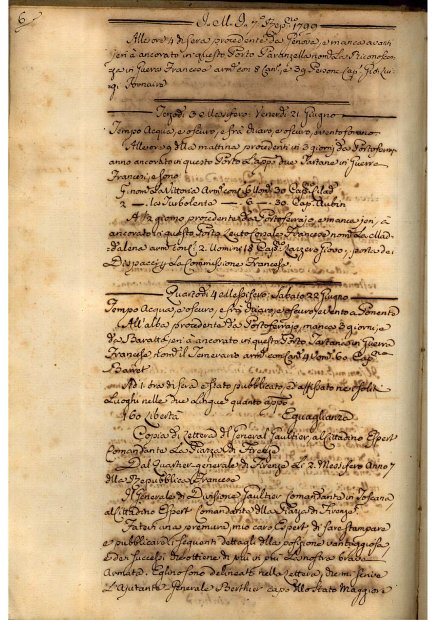 6
Alle ore 4 di sera procedente da Genova, e manca avant
jeri à ancorato in questo Porto Partanzella nom.ta La Riconoscen
za in Guerra Francese arm.a con 8 Can.i e 39 Persone Cap.
Fornaire
Terzodì 3 Messifero: Venerdì 21 Giugno
Tempo Acqua, e oscuro, e frà chiaro, e oscuro, vento
Alle ore 9 dlla mattina procedenti in 3 giorni da Portoferraj
anno ancorato in questo Porto l'app.e due Partane in Guerra
Francesi, e sono
G. nom.ta La Vittoria Arm. con 6 Uom. 30 Cap.
2 — la Turbolente — 6 — 30 Cap. Aubin
A ½ giorno procedente da Portoferrajo, e manca jeri, à
ancorato in questo Porto Leuto Corsale Francese nominato La Mad
dalena arm. con 2. Uomini 18 Cap. Lazzero porta dei
Dispacci p. la Commissione Francese.
Quartodì 4 Messifero, Sabato 22 Giugno
Tempo Acqua, e oscuro, e frà chiaro, e oscuro, vento a Ponente
All'alba procedente da Portoferrajo, manca 3 giorni, e
da Baratti jeri à ancorato in questo Porto Partana in Guerra
Francese nom. il Temerario arm. con Can. 4 Uom. 60
Barret
Ad 1. ora di sera è stato pubblicato, e affissato ne soliti
Luoghi nelle due Lingue quanto app.e
N 60 Libertà Eguaglianza
Copia di Lettera di General Gaultier al Cittadino Espert
Comandante La Piazza di Firenze
Dal Quartier-generale di Firenze li 2. Messifero Anno 7
dlla Repubblica Francese
Il Generale di Divisione Gaultier Comandante in Toscana,
al Cittadino Espert Comandante dlla Piazza di Firenze
Fatevi una premura, mio caro Espert di fare stampare
e pubblicare i seguenti dettagli dlla posizione vantaggiosa
e dei successi che ottiene di più in più la nostra brava
Armata. Eglino sono delineati nella Lettera, che mi scrive
L'Ajutante Generale Berthier capo dllo Stato Maggiore